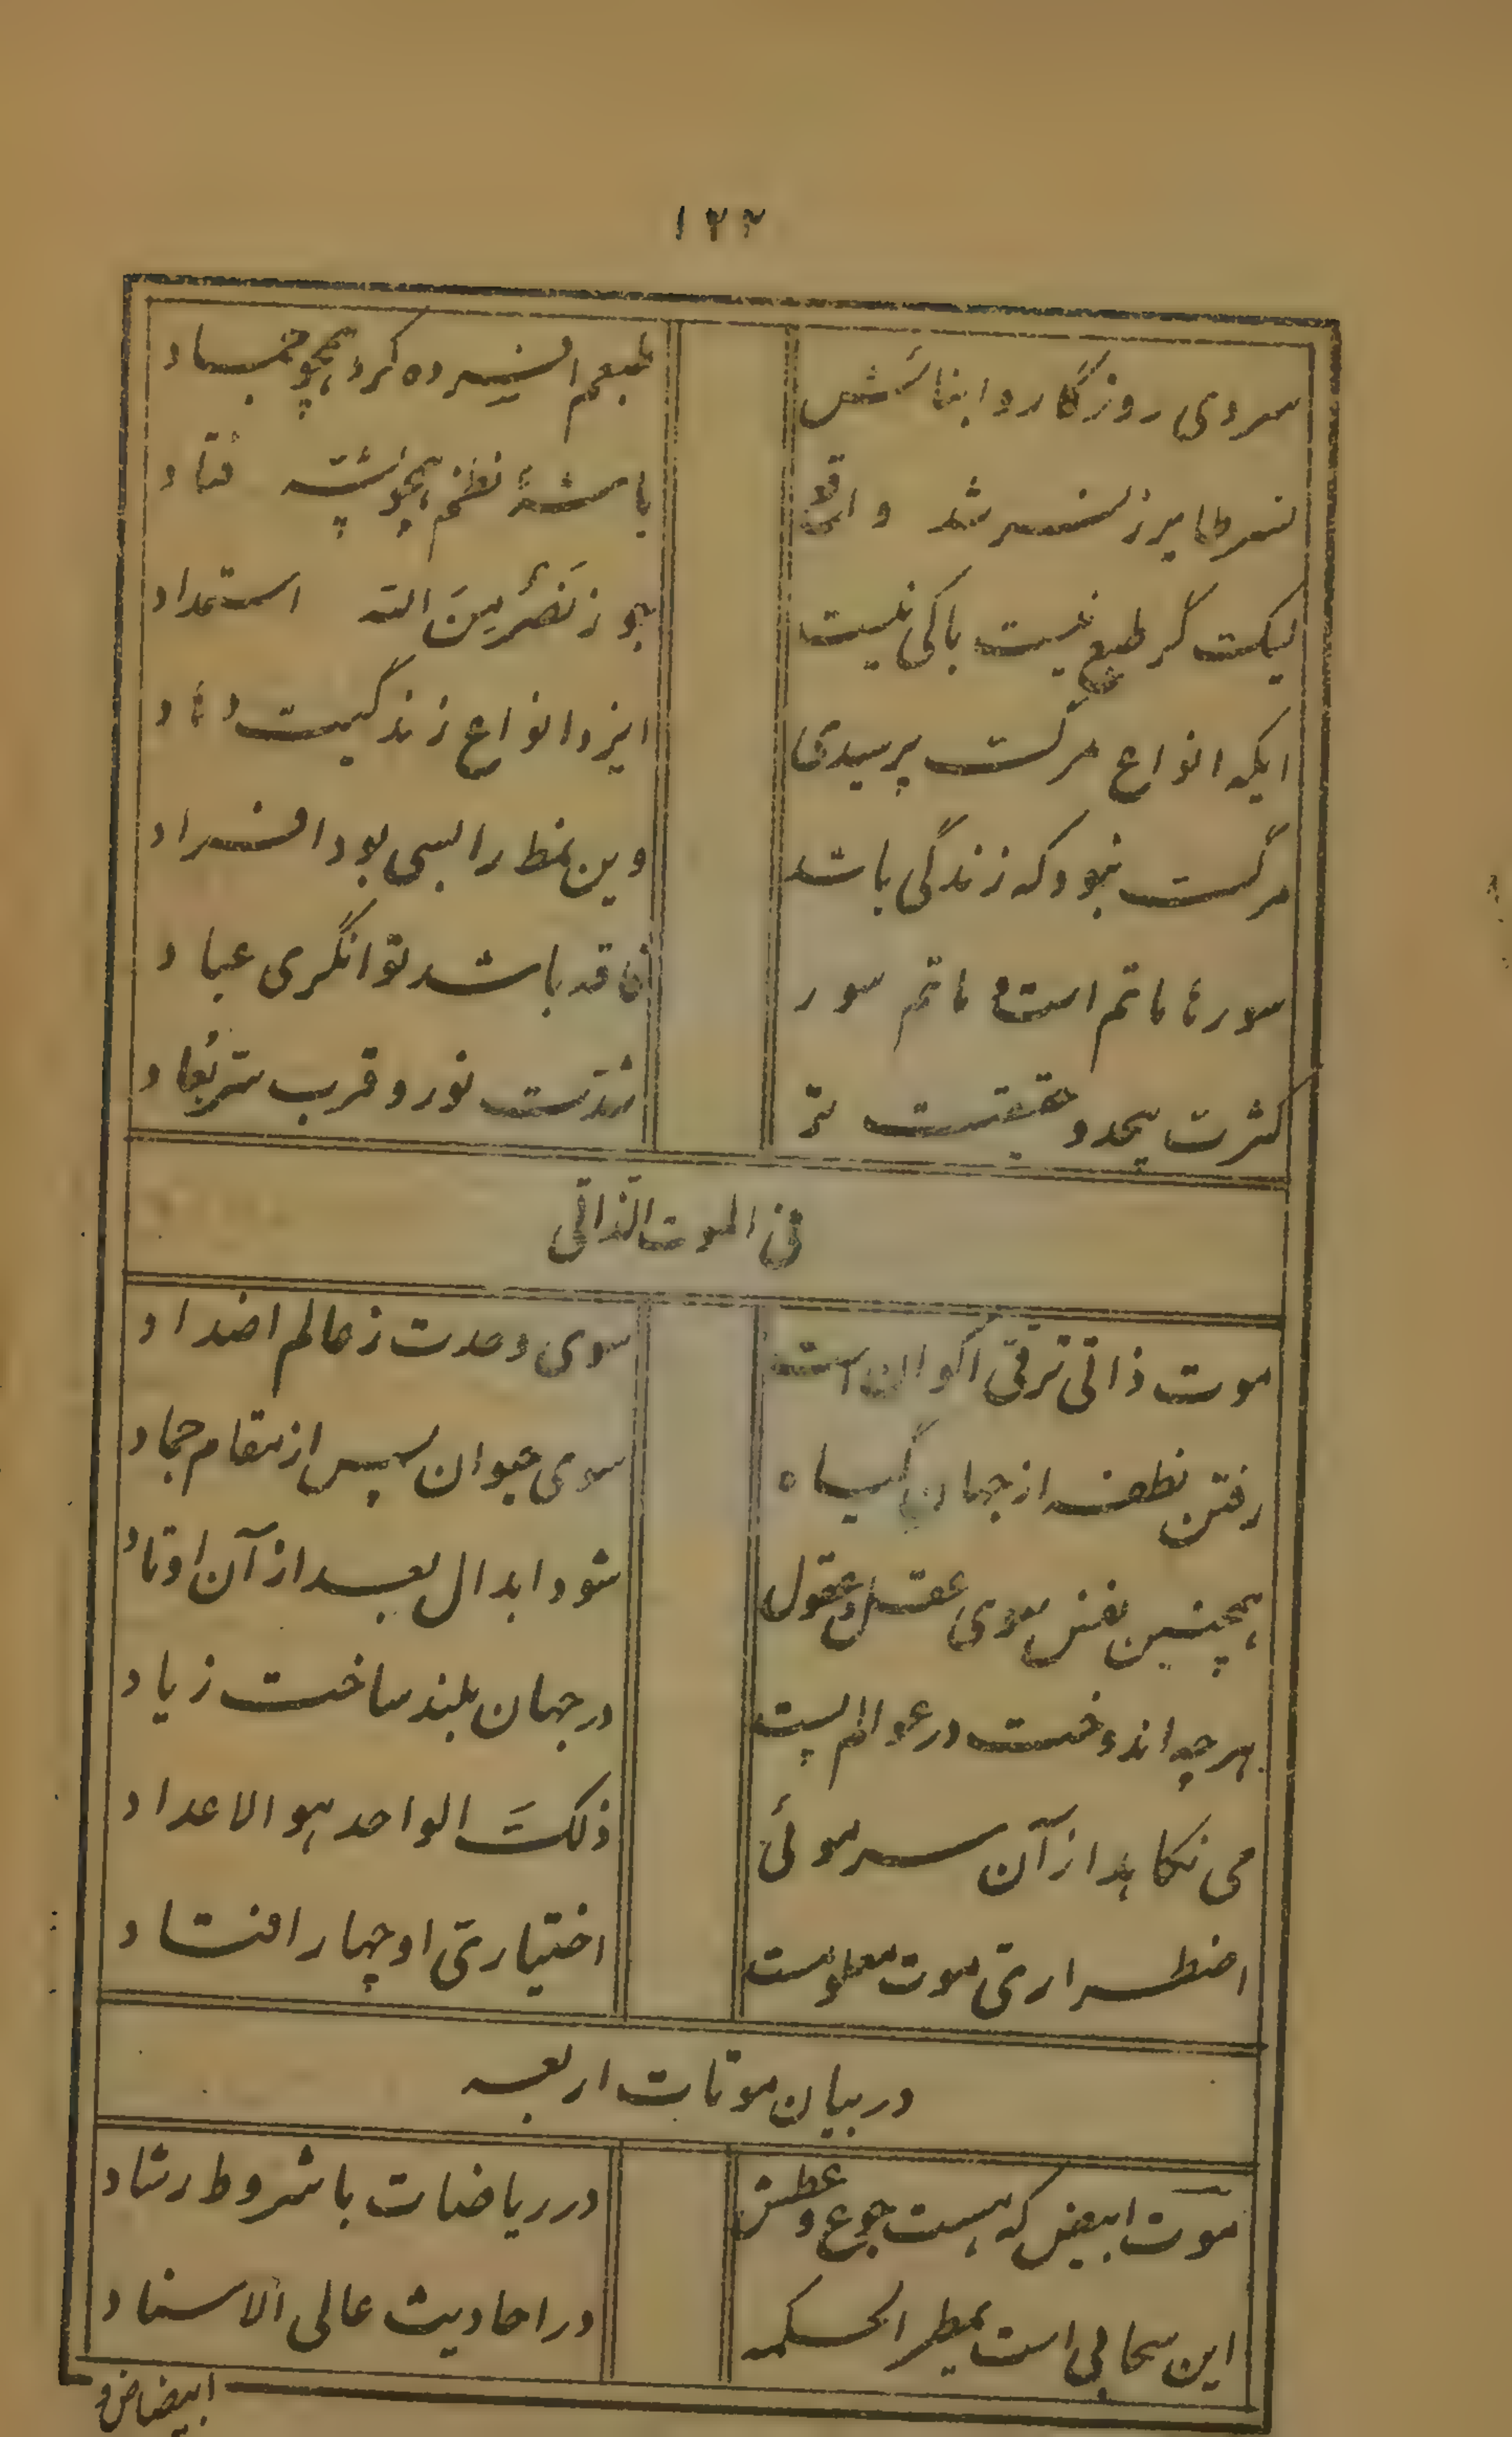 ۱۲۲
سردی روزگار و ابنائش طبعم افسرده کرد همچو جماد
نسر طایر ز نسر شد واقع باشهٔ نظم همچو پشه فتاد
لیک گر طبع نیست باکی نیست جو ز نَصْرٌ مِنَ الله استمداد
ایکه انواع مرگت پرسیدی ایزد انواع زندگیت دهاد
مرگت نبود که زندگی باشد وین نمط را بسی بود افراد
سورها ماتم است و ماتم سور فاقه باشد توانگری عباد
کثرت بیحد و حقیقت تو شدّت نور و قرب سرّ بُعاد
فی الموت الذّاتی
موت ذاتی ترقّی اکوان است سوی وحدت ز عالم اضداد
رفتن نطفه از جهان گیاه سوی حیوان سپس از مقام جماد
همچنین نفس سوی عقل و عقول شود ابدال بعد از آن اوتاد
هر چه اندوخت در عوالم پست در جهان بلند ساخت زیاد
می نکاهد از آن سر موئی ذلکَ الواحد هو الاعداد
اضطراری موت معلومست اختیاری او چهار افتاد
در بیان موتات اربعه
موت ابیض که هست جوع و عطش در ریاضات با شروط رشاد
این سحابی است یمطر الحکمه در احادیث عالی الاسناد
ابیضاض و